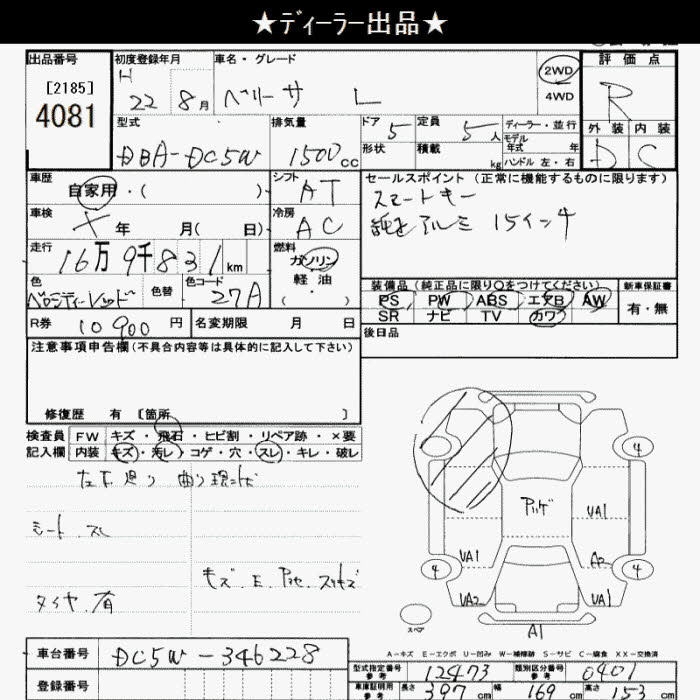 ★ディーラー出品★
出品番号
[2185]
4081
初度登録年月
H 22 8月
車名・グレード
ベリーサ L
2WD
4WD
評価点
R
外装 内装
D C
型式
DBA-DC5W
排気量
1500cc
ドア 5
形状
定員 5人
積載 kg
ディーラー・並行
モデル年式 年
ハンドル 左・右
車歴
自家用・( )
シフト
AT
セールスポイント(正常に機能するものに限ります)
スマートキー
純正アルミ 15インチ
車検
年 月( 日)
冷房
AC
走行
16万9千831km
燃料
ガソリン
軽油
( ・ )
色
ベロシティーレッド
色替
色コード
27A
装備品(純正品に限り○をつけてください)
新車保証書
PS PW ABS エアB AW
SR ナビ TV カワ
有・無
R券 10900円
名変期限 月 日
後日品
注意事項申告欄(不具合内容等は具体的に記入して下さい)
修復歴 有 [箇所 ]
検査員
記入欄
FW キズ・飛石・ヒビ割・リペア跡・×要
内装 キズ・汚レ・コゲ・穴・スレ・キレ・破レ
シート スレ
キズ.E.
タイヤ.有
4
4
4
UA1
UA1
A2
UA2
UA1
A1
スペア
A-キズ E-エクボ U-凹み W-補修跡 S-サビ C-腐食 XX-交換済
車台番号
DC5W-346228
登録番号
型式指定番号 参考
12473
類別区分番号 参考
0401
車庫証明用 参考
長さ 397cm 幅 169cm 高さ 153cm